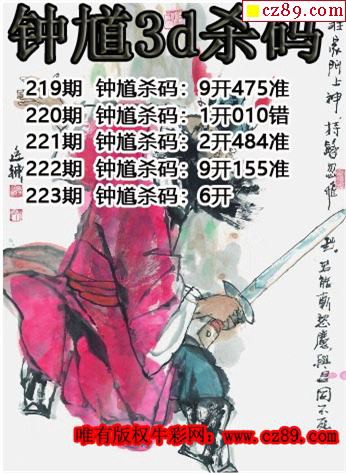 cz89.com
钟馗3d杀码
219期 钟馗杀码：9开475准
220期 钟馗杀码：1开010错
221期 钟馗杀码：2开484准
222期 钟馗杀码：9开155准
223期 钟馗杀码：6开
唯有版权牛彩网：www.cz89.com